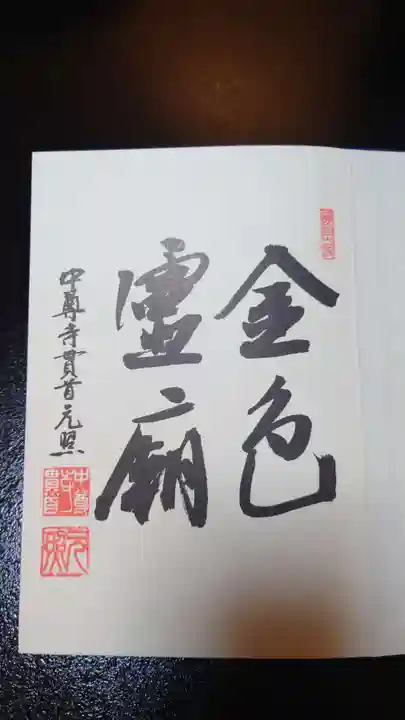 金色
霊廟
中尊寺貫首元照
中尊
寺
貫首
元
照